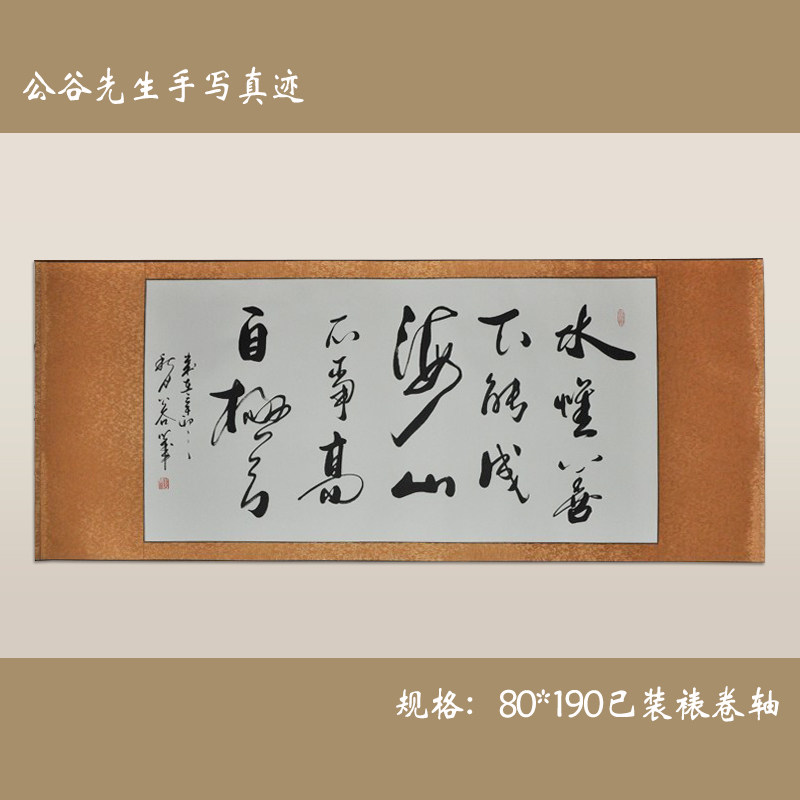 公谷先生手写真迹
水惟善
下能成
海山
不争高
自極天
歲在辛卯
秋月公谷筆
规格：80*190已装裱卷轴